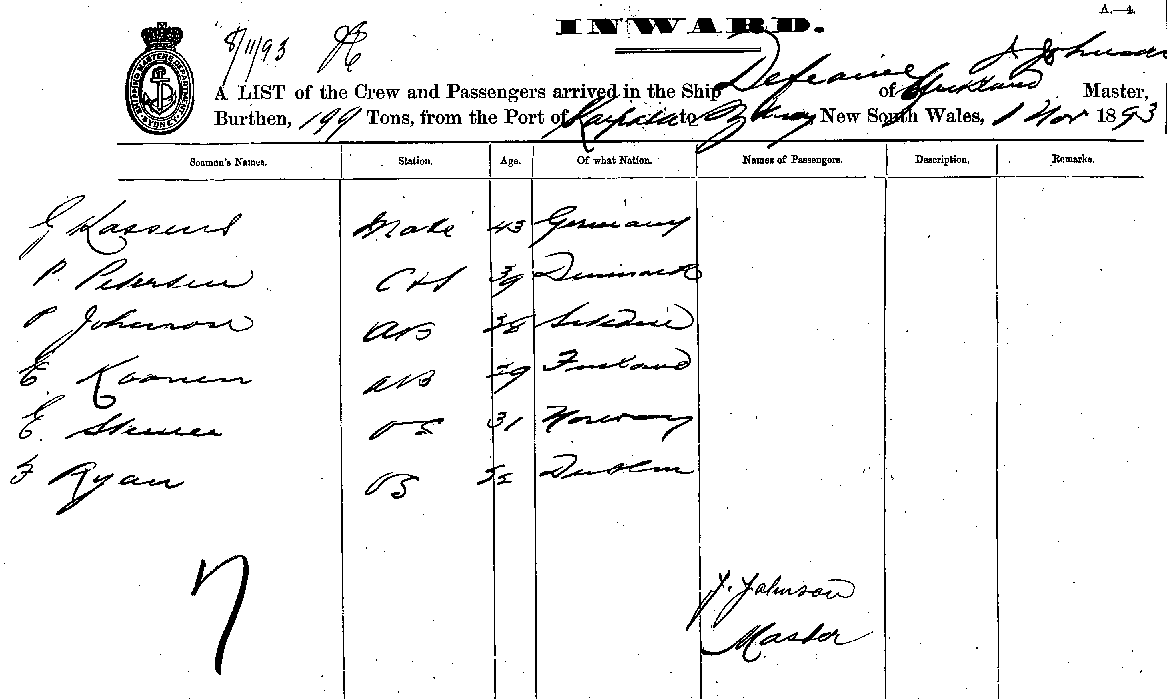 A.—4.
INWARD.
8/11/93
J Johnson
A LIST of the Crew and Passengers arrived in the Ship Defiance of Auckland Master,
Burthen, 199 Tons, from the Port of Kaipara to Sydney New South Wales, 1 Nov 1893
Seamen's Names. Station. Age. Of what Nation. Names of Passengers. Description. Remarks.
G Kassens Mate 43 Germany
P. Petersen C & S 39 Denmark
P Johnson AB 38
E. Koonen AB 29
E. 31 Norway
F Ryan Dublin
7
J. Johnson
Master